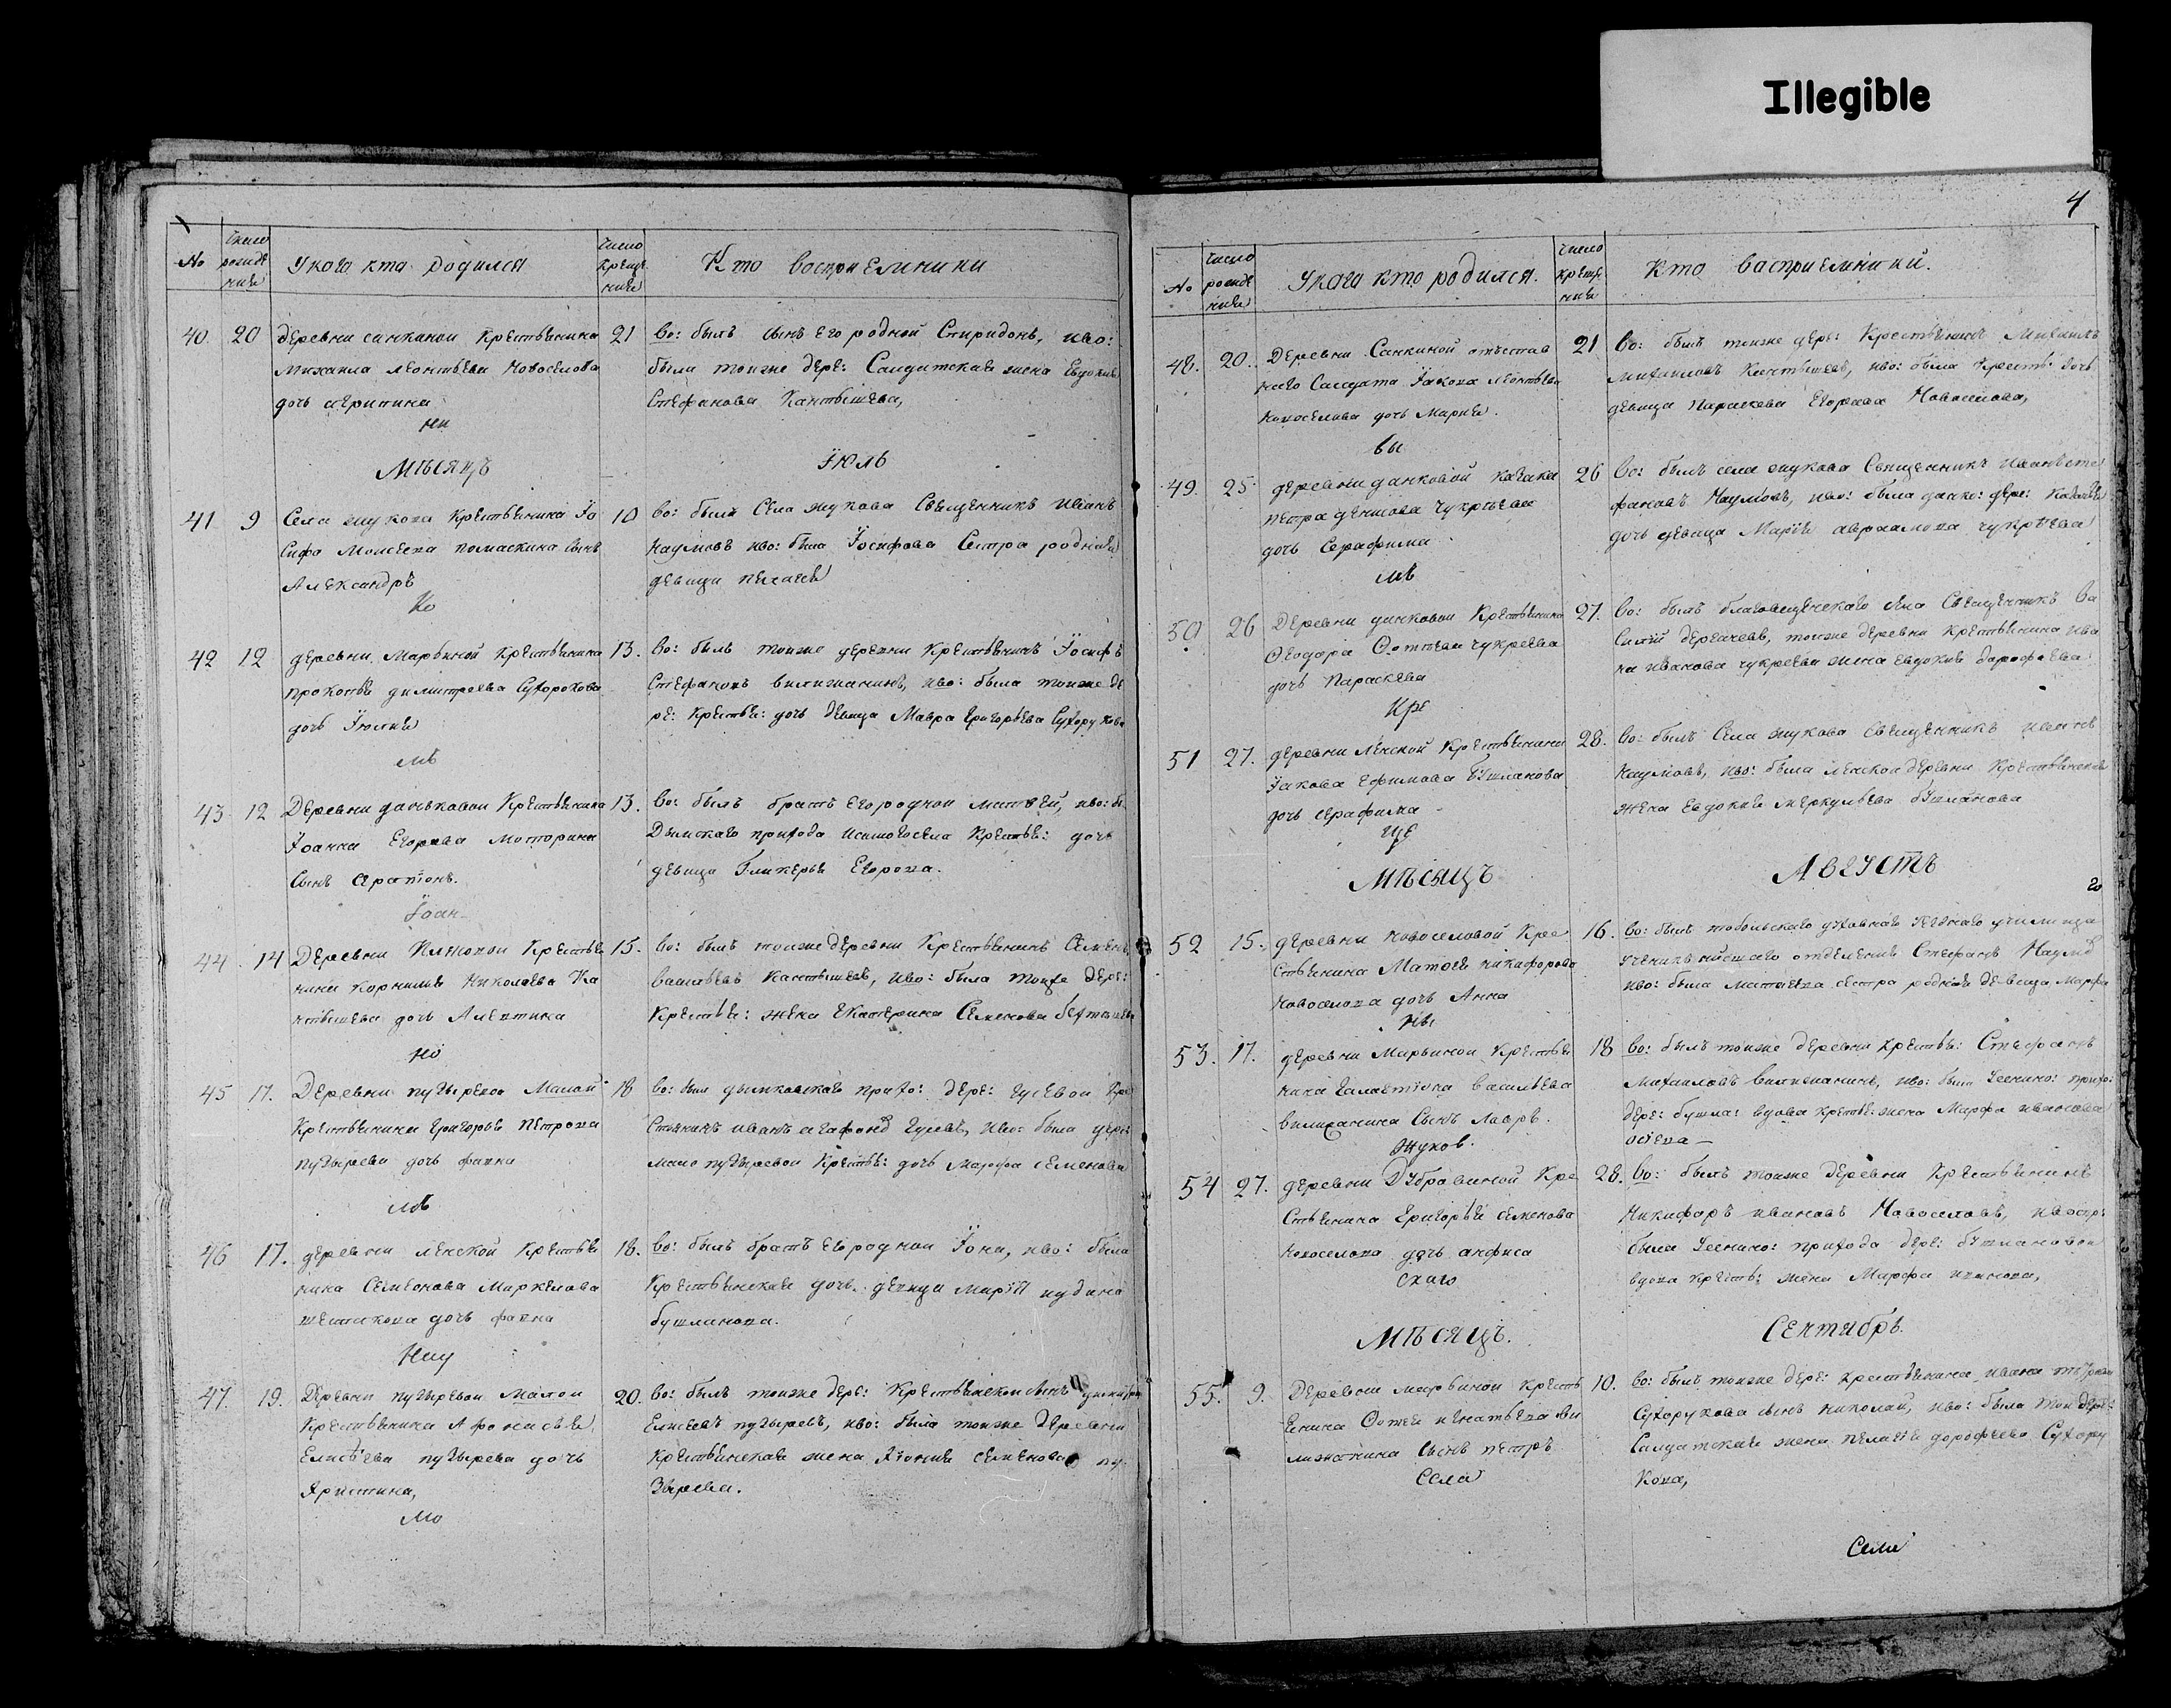 Illegible
4
No
Число рожде ния
У кого кто родился
Число креще ния
Кто восприемники
40. 20
деревни санкиной Крестьянина
Михаила леонтьева Новоселова
дочь агрипина
ни
21
во: былъ сынъ его родной Спиридонъ, иво:
была тоиже дере: Салдатская жена Евдокия
Стефанова Кантышева,
Мѣсяцъ
Їюль
41. 9
Села жукова Крестьянина Їо
сифа Моисеева помаскина сынъ
Александръ
Ко
10
во: былъ Села жукова Священникъ Иванъ
наумовъ иво: была Їосифова Сестра родная
девица пелагея
42 12
деревни Марьиной крестьянина
прокопья димитреева Сухорукова
дочь Їюлия
мѣ
13.
во: былъ тоиже деревни Крестьянинъ Їосифъ
Стефановъ вилижанинъ, иво: была тоиже де
ре: крестья: дочь девица Мавра григорьева Сухорукова
43 12
Деревни даньковои Крестьянина
Їоанна Егорова Моторина
Сынъ
Їоан
13.
во: былъ братъ его роднои матвей, иво: бы
Дымскаго прихода Крестья: дочь
девица Гликерья Егорова.
44. 14
Деревни Крестья
нина корнилья Николаева Ка
нтышева дочь Алевтина
но
15.
во: былъ тоиже деревни Крестьянинъ Семенъ
васильевъ кантышевъ, иво: была тоиже дере:
Крестья: жена Екатерина Семенова
45 17.
Деревни пузырева Малой
Крестьянина григорья петрова
пузырева дочь фаина
мѣ
18
во: был прихо: дере: гусевои Кре
стьянинъ иванъ гусевъ, иво: была дере:
мало пузыревои Крестья: дочь марфа семенова
46 17.
деревни ленской Крестья
нина Семенова Маркелова
дочь фаина
Нау
18.
во: былъ братъ его роднои Їона, иво: была
Крестьянская дочь девица Марїя
бушланова.
47. 19.
Деревни пузыревои малои
Крестьянина Афонасья
Елисѣева пузырева дочь
Христина,
Мо
20.
во: былъ тоиже дере: Крестьянскои сынъ
Елисеевъ пузыревъ, иво: была тоиже деревни
Крестьянская жена семенова пу
зырева.
No
Число рожде ния
У кого кто родился.
Число креще ния
Кто восприемники.
48. 20.
Деревни Санкиной отъстав
наго Салдата Їакова леонтьева
новоселова дочь Мария.
вы
21
Во: былъ тоиже дере: Крестьянинъ Михаилъ
михаиловъ Кантышевъ, иво: была крестья: дочь
девица параскева Егорова Новоселова,
49. 25
деревни данковой казака
петра денисова чукреева
дочь Серафима
мѣ
26
Во: былъ села жукова Священникъ иванъ сте
фановъ Наумовъ, иво: была данко: дере: казачья
дочь девица Марїя авраамова чукреева
50. 26
Деревни данковои Крестьянина
Феодора Фотеева чукреева
дочь Параскева
Кре
27.
во: былъ благовещенскаго села Священникъ Ва
силїй дергачевъ, тоиже деревни крестьянина ива
на иванова чукреева жена евдокия дорофеева
51 27.
деревни ленской Крестьянина
Їакова Ефимова бушланова
дочь серафима
ще
28.
во: былъ Села жукова священникъ иванъ
наумовъ, иво: была ленской деревни Крестьянская
жена Евдокия меркульева бушланова
Мѣсяцъ
Августъ
го
52 15.
деревни новоселовой Кре
стьянина Матфея никифорова
новоселова дочь Анна
ны
16.
во: былъ тобольскаго духовнаго уѣзднаго училища
ученикъ нисшаго отделения Стефанъ Наумов
иво: была матфеева сестра родная девица марфа
53. 17.
деревни Марьинои Крестья
нина галактиона васильева
вилижанина Сынъ Лавръ.
жуков.
18
во: былъ тоиже деревни крестья: Стефанъ
михаиловъ вилижанинъ, иво: была прихо:
дере: бушла: вдова крестья: жена Марфа иванова
54 27.
деревни Дубравиной Кре
стьянина Григорья семенова
новоселова дочь анфиса
скаго
28.
во: былъ тоиже деревни Крестьянинъ
Никифоръ ивановъ Новоселовъ,
была прихода дере: бушлановои
вдова крестья: жена Марфа иванова,
Мѣсяцъ.
Сентябрь.
55. 9.
Деревни марьинои кресть
янина Фотея игнатьева ви
лижанина сынъ петръ
села
10.
во: былъ тоиже дере: крестьянина ивана
Сухорукова сынъ николай, иво: была тои дере:
Салдатская жена пелагея дорофеева Сухору
кова,
Села